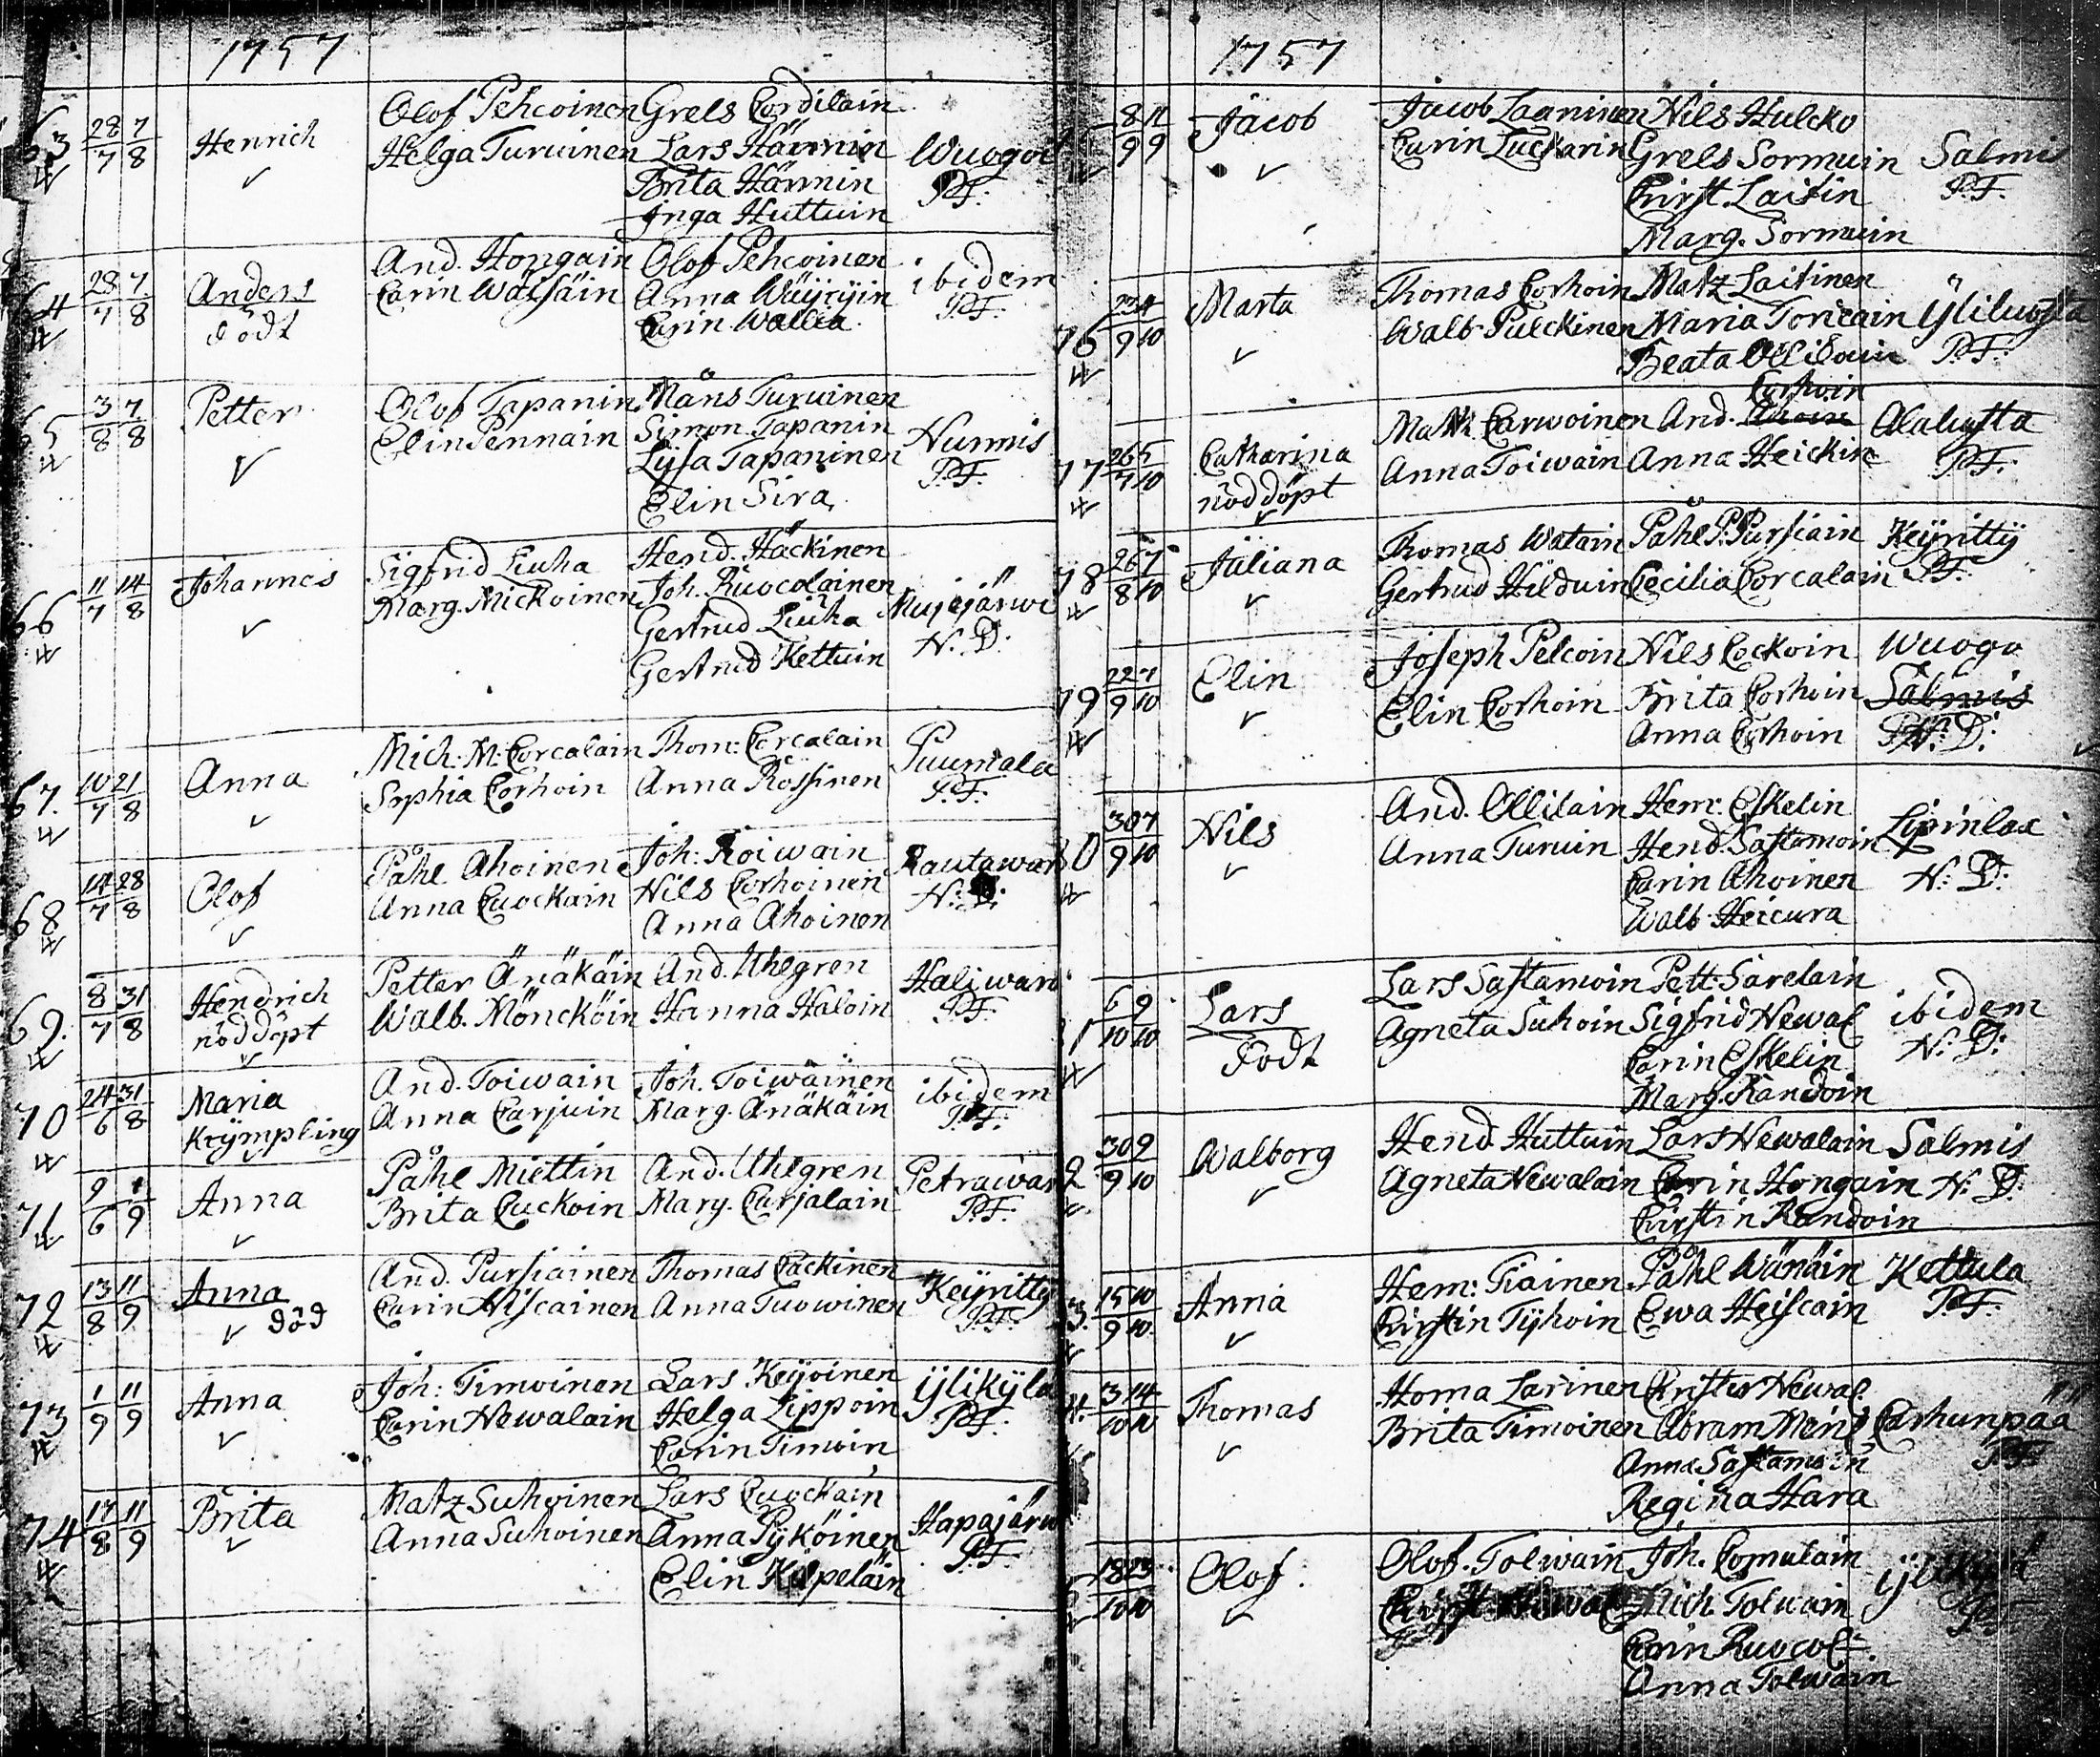 1757
63 28/7 7/8 Henrich Olof Pehcoinen Grels Cordilain
Helga Turuinen Lars Hännin Wuogo
Brita Hännin P.F.
Inga Huttuin
64 28/7 7/8 Anders And. Hongain Olof Pehcoinen ibidem
dödt Carin Watsäin Anna P.F.
Carin Wallia
65 3/8 7/8 Petter Olof Tapanin Måns Turuinen
Elin Pennain Simon Tapanin Nurmis
Lijsa Tapaninen P.F.
Elin Sira
66 11/7 14/8 Johannes Sigfrid Liuha Hend. Häckinen
Marg. Mickoinen Joh. Ruocolainen Mujejärwi
Gertrud Liuha N. D.
Gertrud Kettuin
67. 10/7 21/8 Anna Mich: M: Corcalain Thom: Corcalain Puumala
Sophia Corhoin Anna Rossinen P.F.
68 14/7 28/8 Olof Påhl Ahoinen Joh: Koiwain Rautawar
Anna Cuockain Nils Corhoinen N: D:
Anna Ahoinen
69. 8/7 31/8 Hendrich Petter Änäkäin And. Uhlgren Haliwar
nöddöpt Walb. Möncköin Hanna Haloin P.F.
70 24/6 31/8 Maria And. Toiwain Joh. Toiwäinen ibidem
Krÿmpling Anna Carjuin Marg. Änäkäin P.F.
71 9/6 1/9 Anna Påhl Miettin And. Uhlgren Petrawar
Brita Cuckoin Marg. Carjalain P.F.
72 13/8 11/9 Anna And. Pursiainen Thomas Cäckinen Keÿrittÿ
död Carin Niscainen Anna Tuowinen P.F.
73 1/9 11/9 Anna Joh: Timoinen Lars Keÿoinen ijlikÿlä
Carin Newalain Helga Lippoin P.F.
Carin Timoin
74 17/8 11/9 Brita Matz Suhoinen Lars Cuockain Hapajärw
Anna Suhoinen Anna Pÿköinen P.F.
Elin Kilpeläin
1757
8/9 11/9 Jacob Jacob Laaninen Nils Hulcko
Carin Luckarin Grels Sormuin Salmis
Kirst. Laitin P.F.
Marg. Sormuin
76 23/9 4/10 Marta Thomas Corhoin Matz Laitinen
Walb Pulckinen Maria Toricain ÿliluosta
Beata Ollilain P.F.
Corhoin
77 26/7 5/10 Catharina Math Carwoinen And. Alaluosta
nöddöpt Anna Toiwain Anna Heickin P.F.
78 26/8 7/10 Juliana Thomas Watain Påhl P. Pursiain Keÿrittÿ
Gertrud Hilduin Cecilia Corcalain P.F.
79 22/9 7/10 Elin Joseph Pelcoin Nils Ceckoin Wuogo
Elin Corhoin Brita Corhoin Salmis
Anna Corhoin N: D:
0 30/9 7/10 Nils And. Ollilain Hem: Eskelin Lipinlax
Anna Turuin Hend. Sastamoin N: D:
Carin Ahoinen
Walb. Heicura
1 6/10 9/10 Lars Lars Sastamoin Pett: Sarelain ibidem
Födt Agneta Suhoin Sigfrid Newal N: D:
Carin Eskelin
Marg. Randoin
2 30/9 9/10 Walborg Hend. Huttuin Lars Newalain Salmis
Agneta Newalain Carin Hongain N: D.
Cirstin Randoin
3. 15/9 10/10 Anna Hem: Tiainen Påhl Wänäin Kettula
Kirstin Tÿhoin Ewa Heiscain P.F.
4. 3/10 14/10 Thomas Homa Larinen Christer Newal
Brita Timoinen Abram Mein Carhunpää
Anna Sastamoin P.F.
Regina Hara
18/10 23/10 Olof. Olof. Tolwain Joh. Comulain
Mich Tolwain
Carin Ruocol
Anna Tolwain